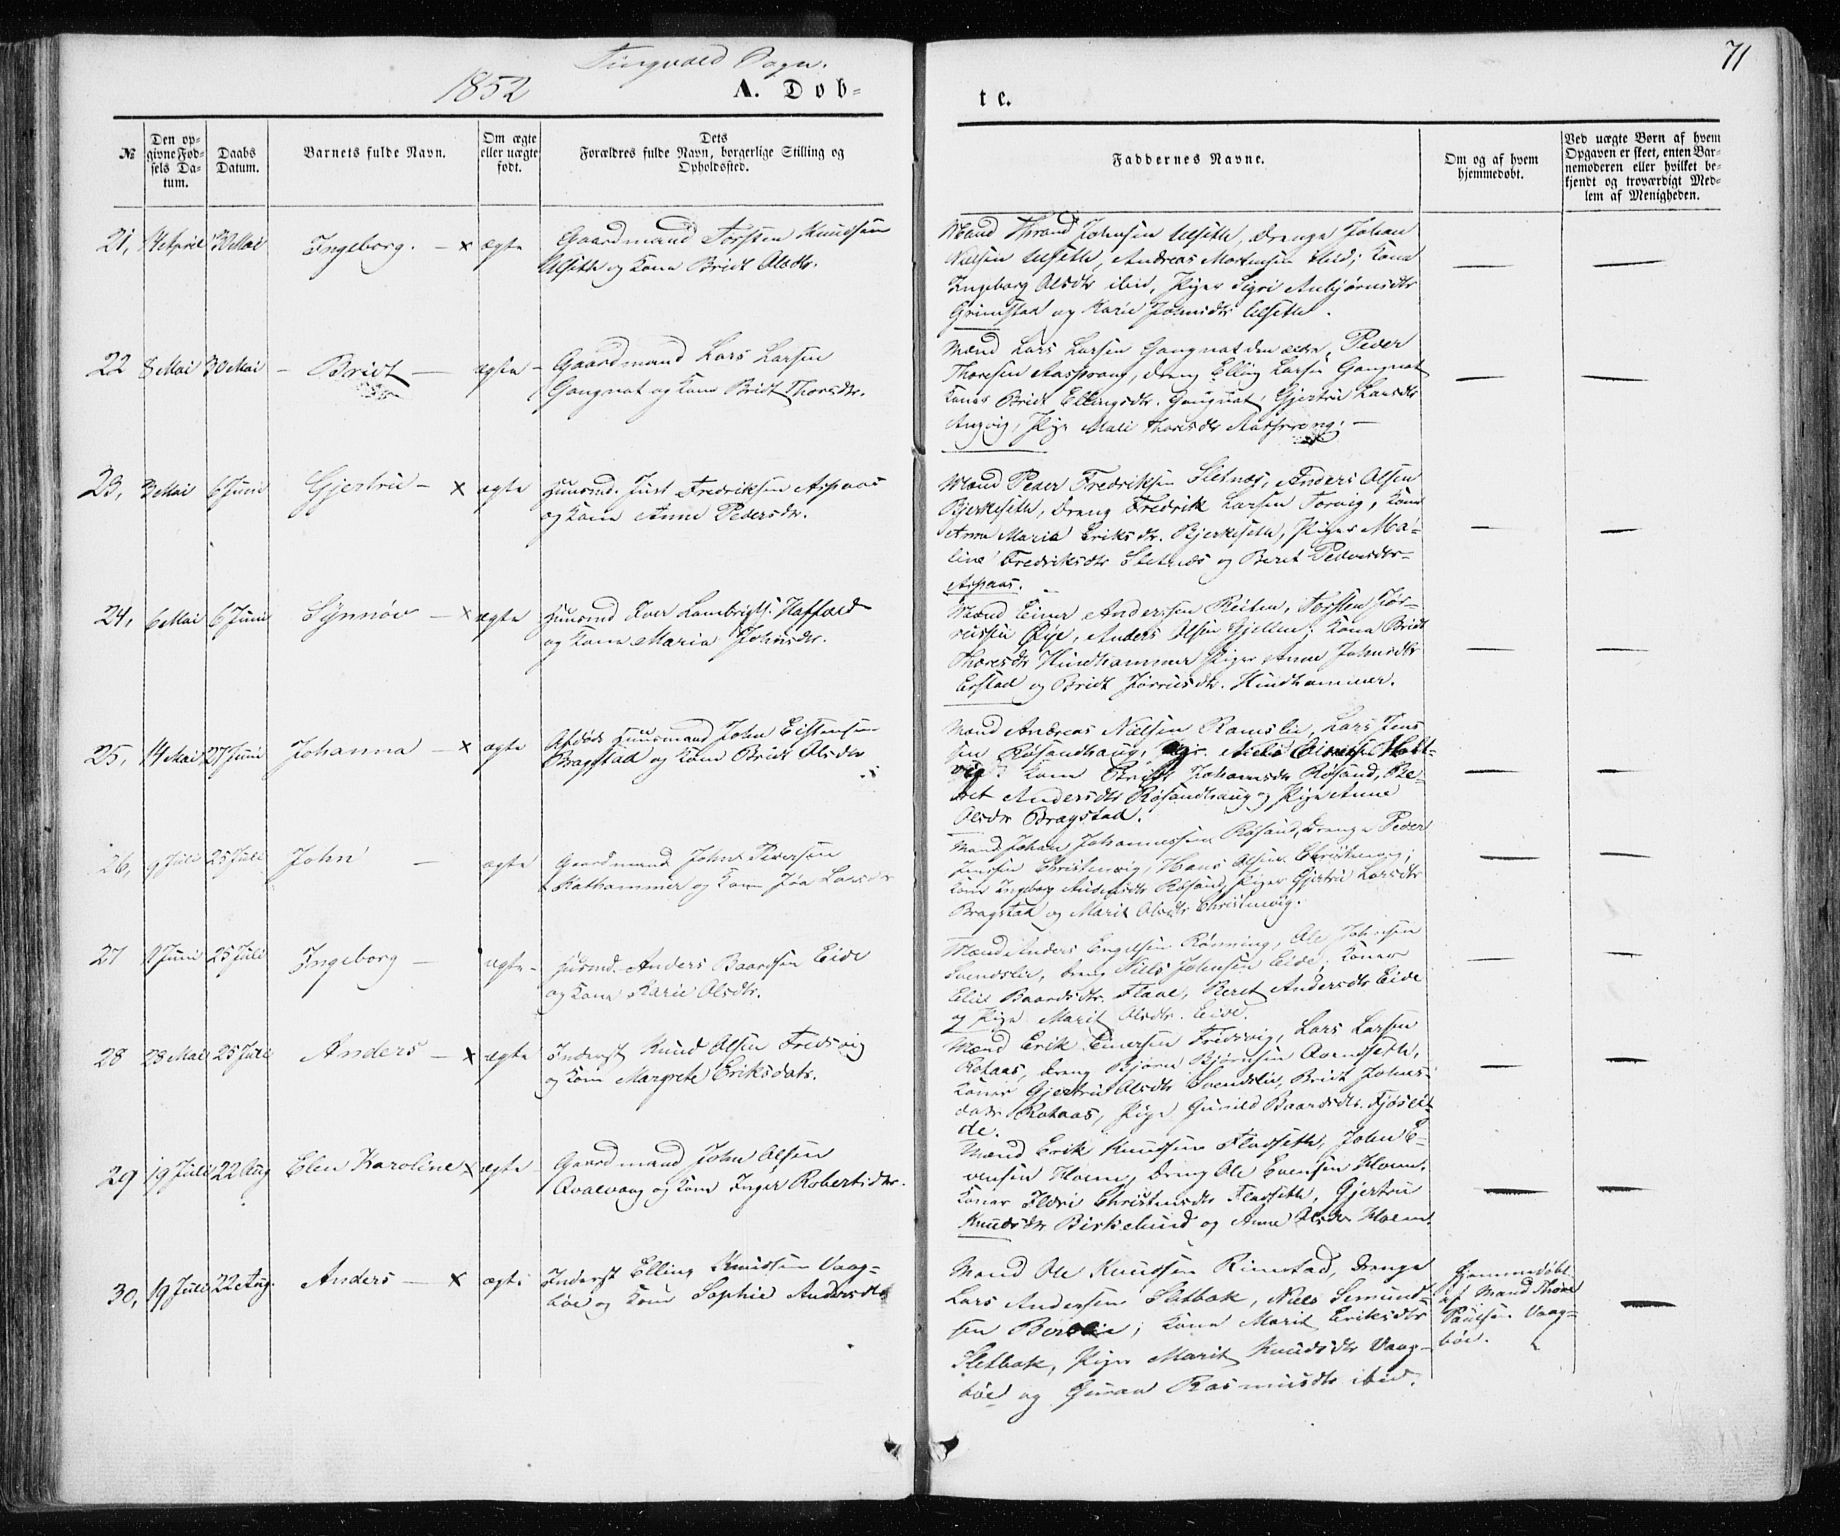 Tingvold Sogn.
1852
A. Døb-
te.
71
№
Den op-
givne Fød-
sels Da-
tum.
Daabs
Datum.
Barnets fulde Navn.
Om ægte
eller uægte
født.
Dets
Forældres fulde Navn, borgerlige Stilling og
Opholdssted.
Faddernes Navne.
Om og af hvem
hjemmedøbt.
Ved uægte Børn af hvem
Opgaven er skeet, enten Bar-
nemoderen eller hvilket be-
kjendt og troværdigt Med-
lem af Menigheden.
21, 14 April 30 Mai Ingeborg. – x ægte
Gaardmand Torsten Knudsen
Ulseth og Kone Bridt Olsdtr.
Mand Thrond Johnsen Ulseth, Drenge Johan
Nilsen Ulseth, Andreas Mortensen ibid; Kone
Ingeborg Olsdtr ibid, Piger Sigri Anbjørnsdtr
Grimstad og Marie Johnsdtr Ulseth.
22 8 Mai 30 Mai – Beridt – ægte –
Gaardmand Lars Larsen
Gangnat og Kone Bridt Thoresdtr.
Mænd Lars Larsen Gangnat den ældre, Peder
Thoresen Aasprong, Dreng Elling Larsen Gangnat
Koner Bridt Ellingsdtr. Gangnat, Gjertru Larsdtr
Angvig, Pige Mali Thoresdtr Aasprong. –
23, 3 Mai 6 Juni Gjertru – x ægte
Huusmd. Just Fredriksen Aspaas
og Kone Anne Pedersdtr.
Mænd Peder Fredriksen Sletnæs, Anders Olsen
Bjerkeseth, Dreng Fredrik Larsen Torvig, Kone
Anne Maria Eriksdtr. Bjerkeseth, Piger Ma-
line Fredriksdtr Sletnæs og Beret Pedersdtr
Aspaas.
24, 6 Mai 6 Juni Synnøv – x ægte
Huusmd Iver Lambrigts. Haffald
og Kone Maria Johnsdtr.
Mænd Einer Anderssen Reiten, Torsten Jør-
Øye, Anders Olsen Gjellen; Kone Bridt
Thoresdtr Hindhammer Piger Anne Johnsdtr
og Bridt Hindhammer.
25, 14 Mai 27 Juni Johanna – x ægte
Afdøde Huusmand John Eistensen
Bragstad og Kone Bridt Olsdtr
Mænd Andreas Nielsen Ramslie, Lars Jens
sen Røsandhaug, Niels
Kone Johannesdtr Røsand, Be-
ret Andersdtr Røsandhaug og Pige Anne
Olsdtr Bragstad.
26, 9 Juli 25 Juli John – ægte
Gaardmand John Pedersen
Kathammer og Kone Larsdtr
Mand Johan Johannessen Røsand, Drenge Peder
Jenssen Christenvig, Hans Olsen Christenvig;
Kone Ingeborg Røsand, Piger Gjertru Larsdtr
Bragstad og Marit Olsdtr Christenvig.
27 9 Juni 25 Juli Ingeborg – ægte –
Husmd. Anders Baardsen Eide
og Kone Marie Olsdtr.
Mænd Anders Engelsen Rønning, Ole Johnsen
Svendslie, Dreng Niels Johnsen Eide, Koner
Elie Baardsdtr. Flaae, Beret Andersdtr Eide
og Pige Marit Olsdtr. Eide.
28 23 Mai 25 Juli Anders – x ægte
Inderst Knud Olsen Fredsvig
og Kone Margrete Eriksdatr.
Mænd Erik Einersen Fredsvig, Lars Larsen
Rotaas, Dreng Bjørn Bjørnsen Avendseth,
Koner Gjertru Olsdtr Svendslie, Bridt Johns-
datr Rotaas, Pige Gunild Baardsdtr.
de.
29 19 Juli 22 Aug Elen Karoline x ægte –
Gaardmand John Olsen
Avalvaag og Kone Inger Robertsdtr.
Mænd Erik Knudsen Fladseth, John E-
vensen Hoem, Dreng Ole Evensen Hoem.
Koner Ildri Christensdtr Fladseth, Gjertru
Knudsdtr Birkelund og Anne Olsdtr Hoem.
30, 19 Juli 22 Aug. Anders – x ægte
Inderst Elling Knudsen Vaag-
bøe og Kone Sophie Andersdtr
Mand Ole Knudsen Rimstad, Drenge
Lars Andersen Sletbak, Niels Simund-
sen; Kone Marit Eriksdtr
Sletbak, Piger Marit Knudsdtr Vaag-
bøe og Guran Rasmusdtr ibid.
Hjemmedøbt
af Mand Thore
Paulsen Vaag-
bøe.